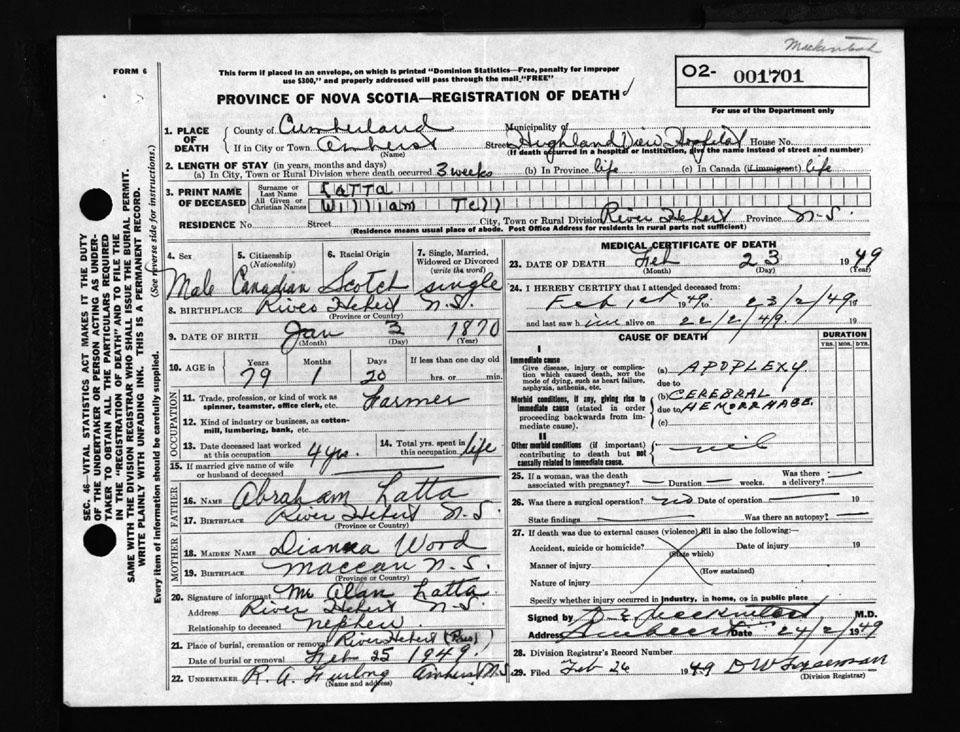 Mackintosh
FORM 6
This form if placed in an envelope, on which is printed "Dominion Statistics—Free, penalty for improper
use $300," and properly addressed will pass through the mail "FREE"
O2- 001701
For use of the Department only
PROVINCE OF NOVA SCOTIA—REGISTRATION OF DEATH
1. PLACE OF DEATH
County of Cumberland Municipality of
If in City or Town Amherst Street Highland View Hospital House No.
(Name) (If death occurred in a hospital or institution, give the name instead of street and number)
2. LENGTH OF STAY (in years, months and days)
(a) In City, Town or Rural Division where death occurred 3 weeks (b) In Province life (c) In Canada (if immigrant) life
3. PRINT NAME OF DECEASED
Surname or Last Name LATTA
All Given or Christian Names William Tell
RESIDENCE No. Street City, Town or Rural Division River Hebert Province N.S.
(Residence means usual place of abode. Post Office Address for residents in rural parts not sufficient)
SEC. 46—VITAL STATISTICS ACT MAKES IT THE DUTY
OF THE UNDERTAKER OR PERSON ACTING AS UNDER-
TAKER TO OBTAIN ALL THE PARTICULARS REQUIRED
IN THE "REGISTRATION OF DEATH" AND TO FILE THE
SAME WITH THE DIVISION REGISTRAR WHO SHALL ISSUE THE BURIAL PERMIT.
WRITE PLAINLY WITH UNFADING INK. THIS IS A PERMANENT RECORD.
Every item of information should be carefully supplied. (See reverse side for instructions.)
4. Sex Male
5. Citizenship (Nationality) Canadian
6. Racial Origin Scotch
7. Single, Married, Widowed or Divorced (write the word) single
8. BIRTHPLACE River Hebert N.S.
(Province or Country)
9. DATE OF BIRTH Jan 3 1870
(Month) (Day) (Year)
10. AGE in Years Months Days If less than one day old
79 1 20 hrs. or min.
OCCUPATION
11. Trade, profession, or kind of work as spinner, teamster, office clerk, etc. Farmer
12. Kind of industry or business, as cotton-mill, lumbering, bank, etc.
13. Date deceased last worked at this occupation 4 yrs.
14. Total yrs. spent in this occupation life
15. If married give name of wife or husband of deceased
FATHER
16. NAME Abraham Latta
17. BIRTHPLACE River Hebert N.S.
(Province or Country)
MOTHER
18. MAIDEN NAME Dianna Wood
19. BIRTHPLACE Maccan N.S.
(Province or Country)
20. Signature of informant Mr Alan Latta
Address River Hebert N.S.
Relationship to deceased nephew
21. Place of burial, cremation or removal River Hebert
Date of burial or removal Feb 25 1949.
22. UNDERTAKER R. A. Furlong Amherst N.S.
(Name and address)
MEDICAL CERTIFICATE OF DEATH
23. DATE OF DEATH Feb 23 1949
(Month) (Day) (Year)
24. I HEREBY CERTIFY that I attended deceased from:
Feb 1st 1949 to 23/2/49. 19
and last saw him alive on 22/2/49. 19
CAUSE OF DEATH
DURATION
YRS. MOS. DYS.
I
Immediate cause
Give disease, injury or complication which caused death, NOT the mode of dying, such as heart failure, asphyxia, asthenia, etc.
(a) APOPLEXY
due to
Morbid conditions, if any, giving rise to immediate cause (stated in order proceeding backwards from immediate cause).
(b) CEREBRAL
due to HEMORRHAGE.
(c)
II
Other morbid conditions (if important) contributing to death but not causally related to immediate cause.
nil
25. If a woman, was the death associated with pregnancy? Duration weeks. Was there a delivery?
26. Was there a surgical operation? no Date of operation 19
State findings Was there an autopsy?
27. If death was due to external causes (violence) fill in also the following:—
Accident, suicide or homicide? Date of injury 19
(State which)
Manner of injury
(How sustained)
Nature of injury
Specify whether injury occurred in industry, in home, or in public place
Signed by M.D.
Address Amherst Date 24/2/1949
28. Division Registrar's Record Number
29. Filed Feb 26 1949 D W
(Division Registrar)